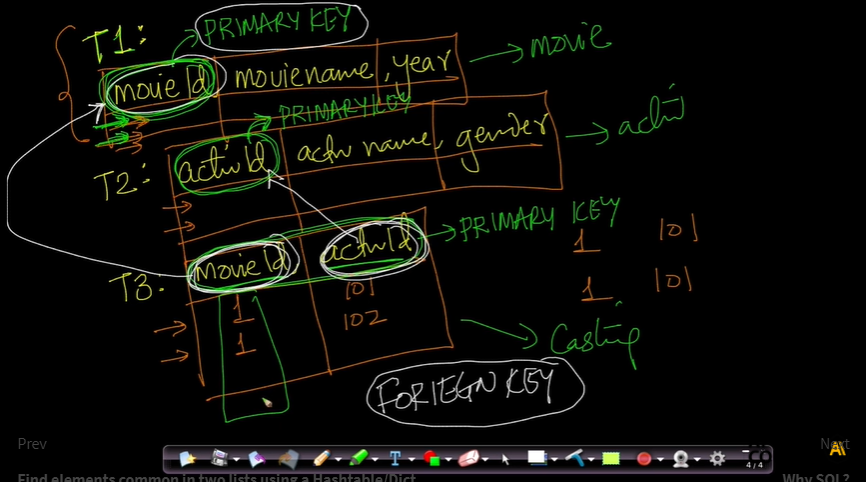 T1:
PRIMARY KEY
movie Id movie name, year
movie
PRIMARY KEY
T2:
actor Id actor name, gender
actor
T3:
movie Id actor Id
PRIMARY KEY
1 101
1 101
1 101
1 102
Casting
FORIEGN KEY
Prev
Next
4 / 4
Find elements common in two lists using a Hashtable/Dict
Why SQL?